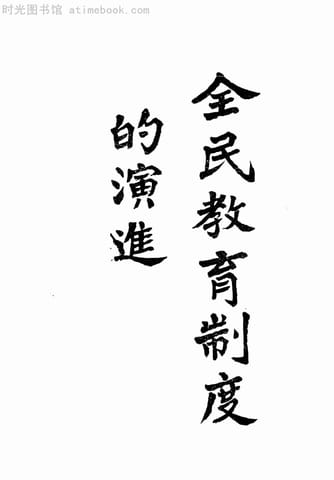 时光图书馆 atimebook.com
全民教育制度
的演進